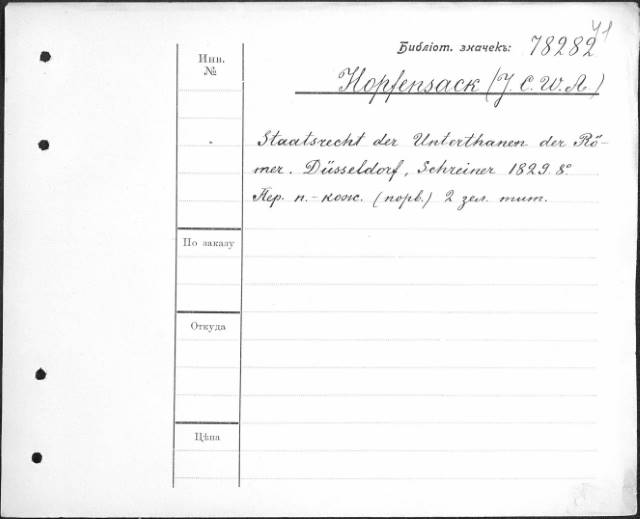 Библіот. значекъ: 78282 41
Инв.
№
Hopfensack (J. C. W. A.)
Staatsrecht der Unterthanen der Rö-
mer. Düsseldorf, Schreiner 1829. 8°
Пер. п.-кож. (порв.) 2 зел. тит.
По заказу
Откуда
Цѣна